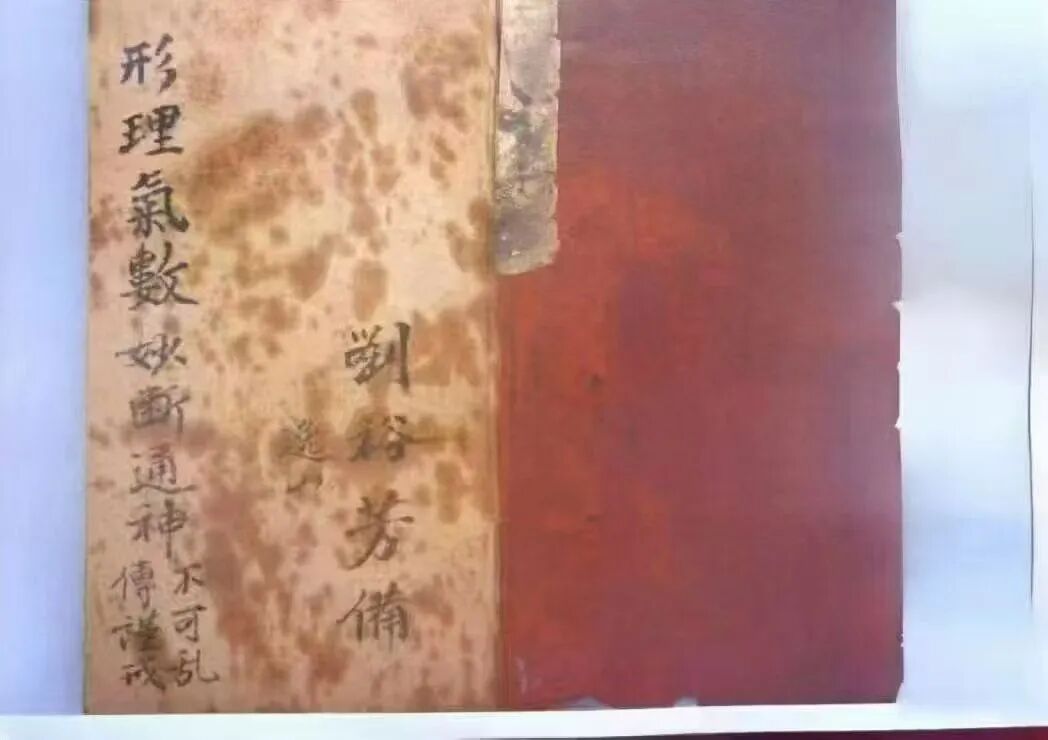 劉裕芳備
逸
形理氣數妙断通神
不可乱
傳謹戒